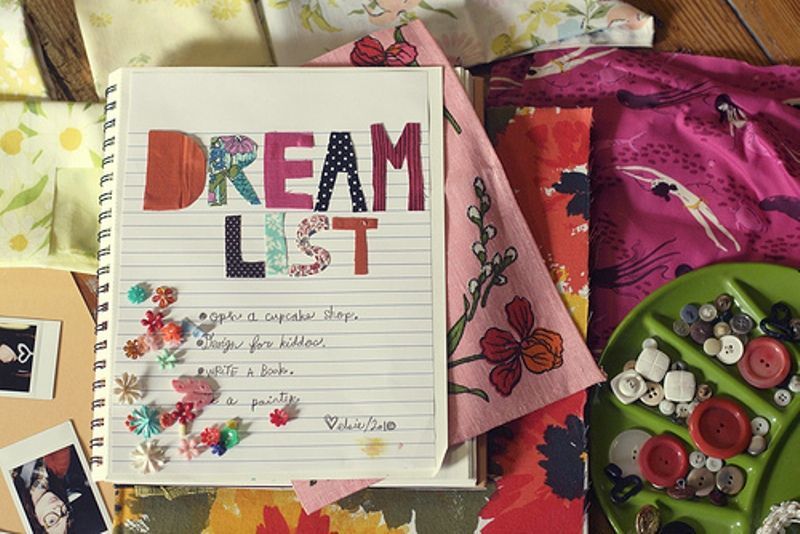 DREAM
LIST
open a cupcake shop.
Design for kiddos.
WRITE A BOOK.
a painter
♡elsie/2010